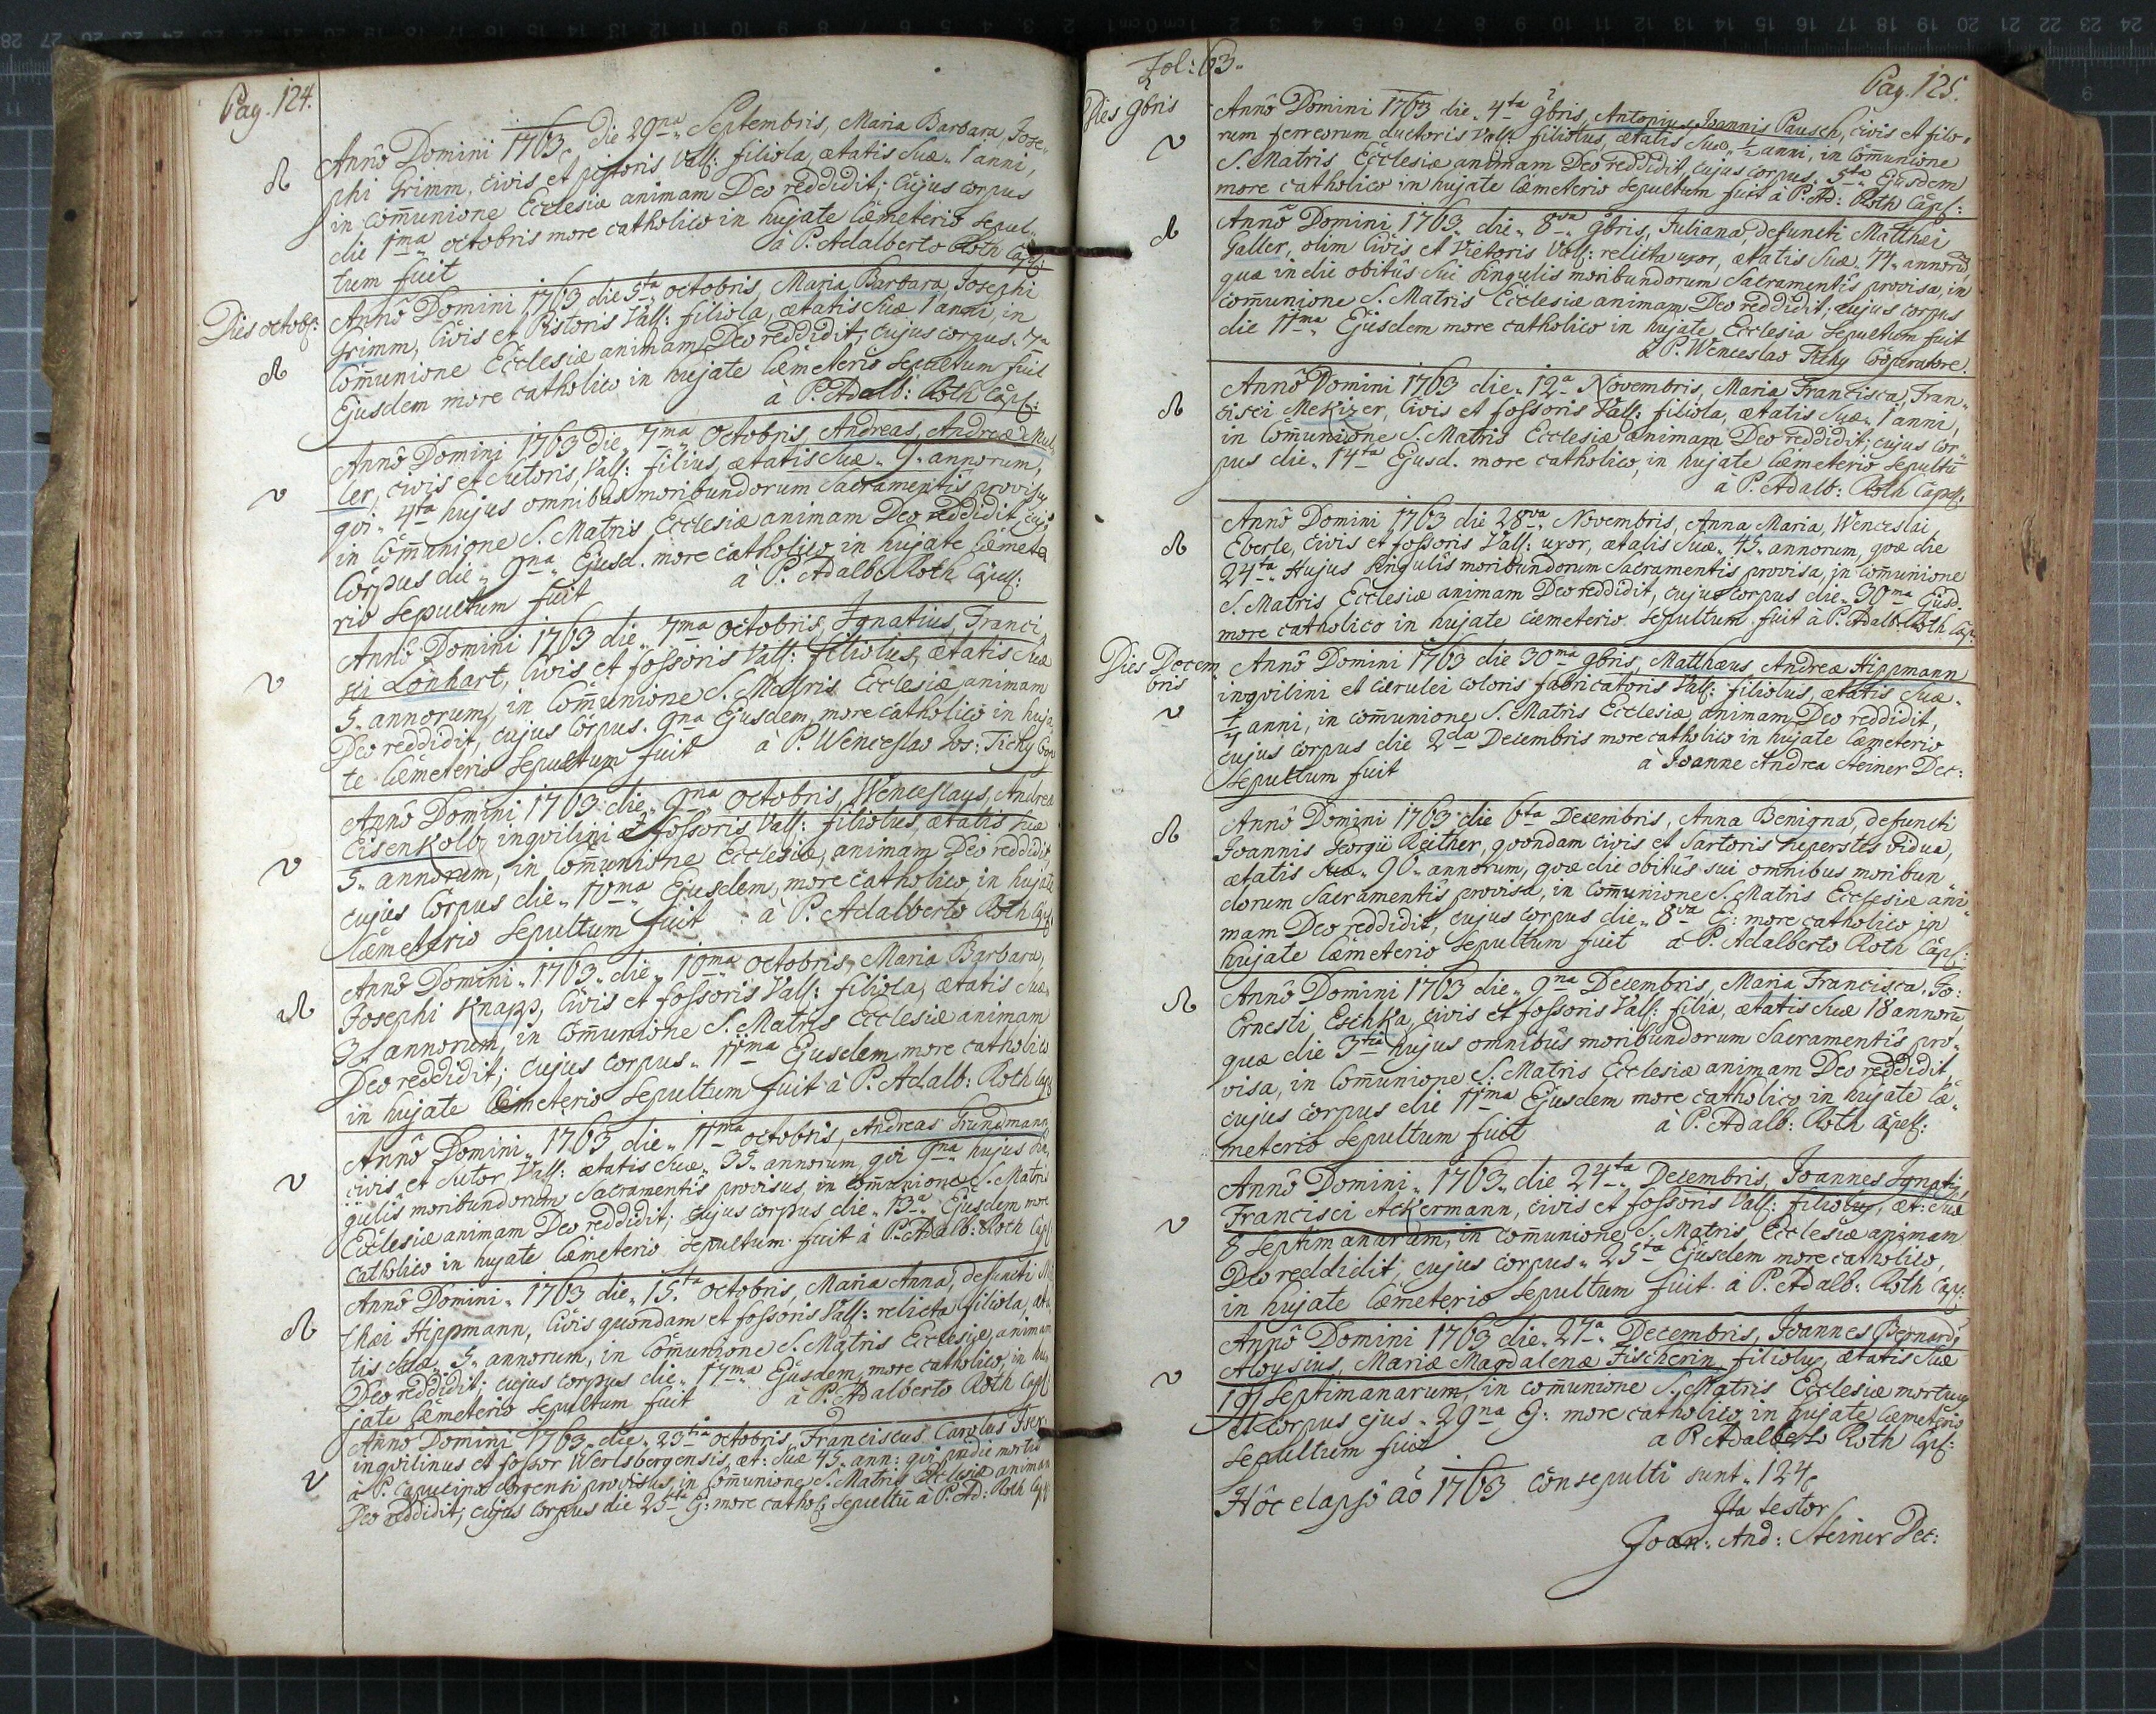 Pag. 124.
Anno Domini 1763. die 29na Septembris, Maria Barbara, Jose-
phi Grimm, civis et pistoris Vall: filiola, ætatis suæ 1 anni,
in communione Ecclesiæ animam Deo reddidit; cujus corpus
die 1ma octobris more catholico in hujate Cœmeterio sepul-
tum fuit à P. Adalberto Roth Capl:
Dies octobr:
Anno Domini 1763 die 5ta octobris, Maria Barbara, Josephi
Grimm, Civis et Pistoris Vall: filiola, ætatis suæ 1 anni, in
Communione Ecclesiæ animam Deo reddidit, cujus corpus 7a
Ejusdem more catholico in hujate Cœmeterio sepultum fuit
à P. Adalb: Roth Capl:
Anno Domini 1763 die 7ma Octobris, Andreas, Andreæ Mul-
ler, civis et sutoris, Vall: filius, ætatis suæ 9 annorum,
qvi 4ta hujus omnibus moribundorum Sacramentis provisus
in Communione S. Matris Ecclesiæ animam Deo reddidit, cujus
Corpus die 9na Ejusd. more catholico in hujate Cœmete-
rio sepultum fuit à P. Adalb: Roth Capell:
Anno Domini 1763 die 7ma octobris, Ignatius, Franci-
sci Lönhart, Civis et fossoris Vall: filiolus, ætatis suæ
5 annorum, in Communione S. Matris Ecclesiæ animam
Deo reddidit, cujus Corpus 9na Ejusdem, more catholico in huja-
te Cœmeterio sepultum fuit à P. Wenceslao Jos: Tichy
Anno Domini 1763 die 9na octobris, Wenceslaus, Andreæ
Eisenkolb, inqvilini et fossoris Vall: filiolus, ætatis suæ
5 annorum, in Communione Ecclesiæ, animam Deo reddidit,
cujus Corpus die 10ma Ejusdem, more catholico, in hujate
Cœmeterio sepultum fuit à P. Adalberto Roth Capl.
Anno Domini 1763 die 10ma octobris, Maria Barbara,
Josephi Knapp, Civis et fossoris Vall: filiola, ætatis suæ
3 annorum, in Communione S. Matris Ecclesiæ animam
Deo reddidit; cujus corpus 11ma Ejusdem more catholico
in hujate Cœmeterio sepultum fuit à P. Adalb: Roth Capl
Anno Domini 1763 die 11ma octobris, Andreas Grundmann
civis et sutor Vall: ætatis suæ 35 annorum, qvi 9na hujus sin-
gulis moribundorum Sacramentis provisus, in Communione S. Matris
Ecclesiæ animam Deo reddidit; cujus corpus die 13a Ejusdem more
catholico in hujate Cœmeterio sepultum fuit à P. Adalb: Roth Capl:
Anno Domini 1763 die 15ta octobris, Maria Anna, defuncti
thæi Hippmann, Civis quondam et fossoris Vall: relicta filiola, æta-
tis suæ 5 annorum, in Communione S. Matris Ecclesiæ, animam
Deo reddidit; cujus corpus die 17ma Ejusdem, more catholico, in hu-
jate Cœmeterio sepultum fuit à P. Adalberto Roth Capl
Anno Domini 1763 die 23tia octobris, Franciscus Carolus
inqvilinus et fossor Werlsbergensis, æt: suæ 45 ann: qvi in die mortis
à P. Capucino provisus, in Communione S. Matris Ecclesiæ animam
Deo reddidit; cujus corpus die 25ta Ej: more cathol: sepultu à P. Ad: Roth Capl
Fol: 63.
Pag. 125.
Dies 9bris
Anno Domini 1763 die 4ta 9bris, Antonius, Joannis Pausch, civis et filo-
rum ferreorum ductoris Vall: filiolus, ætatis suæ 1/2 anni, in communione
S. Matris Ecclesiæ animam Deo reddidit, cujus corpus 5ta Ejusdem
more catholico in hujate Cœmeterio sepultum fuit à P. Ad: Roth Capl:
Anno Domini 1763 die 8va 9bris, Juliana, defuncti Matthæi
Galler, olim Civis et Vietoris Vall: relicta uxor, ætatis suæ 74 annoru,
quæ in die obitus sui singulis moribundorum Sacramentis provisa, in
communione S. Matris Ecclesiæ animam Deo reddidit; cujus corpus
die 11ma Ejusdem more catholico in hujate Ecclesia sepultum fuit
à P. Wenceslao Tichy Cooperatore.
Anno Domini 1763 die 12a Novembris, Maria Francisca, Fran-
cisci Mekizer, Civis et fossoris Vall: filiola, ætatis suæ 1 anni,
in Communione S. Matris Ecclesiæ animam Deo reddidit; cujus cor-
pus die 14ta Ejusd. more catholico, in hujate Cœmeterio sepultu
à P. Adalb: Roth Capell.
Anno Domini 1763 die 28va Novembris, Anna Maria, Wenceslai
Eberle, Civis et fossoris Vall: uxor, ætatis suæ 45 annorum, qvæ die
24ta Hujus singulis moribundorum Sacramentis provisa, in communione
S. Matris Ecclesiæ animam Deo reddidit, cujus corpus die 30ma Ejusd.
more catholico in hujate cœmeterio sepultum fuit à P. Adalb: Roth Cap:
Dies Decem
bris
Anno Domini 1763 die 30ma 9bris, Matthæus, Andreæ Hippmann
inqvilini et cærulei coloris fabricatoris Vall: filiolus, ætatis suæ
anni, in communione S. Matris Ecclesiæ animam Deo reddidit,
cujus corpus die 2da Decembris more catholico in hujate Cœmeterio
sepultum fuit à Joanne Andrea Steiner Dec:
Anno Domini 1763 die 6ta Decembris, Anna Benigna, defuncti
Joannis Georgii Reither, qvondam civis et sartoris superstes vidua,
ætatis suæ 90 annorum, qvæ die obitus sui omnibus moribun-
dorum Sacramentis provisa, in Communione S. Matris Ecclesiæ ani-
mam Deo reddidit, cujus corpus die 8va Ej: more catholico in
hujate Cœmeterio sepultum fuit à P. Adalberto Roth Capl:
Anno Domini 1763 die 9na Decembris, Maria Francisca, Jo:
Ernesti Eschka, civis et fossoris Vall: filia, ætatis suæ 18 annoru,
quæ die 3tia hujus omnibus moribundorum Sacramentis pro-
visa, in Communione S. Matris Ecclesiæ animam Deo reddidit,
cujus corpus die 11ma Ejusdem more catholico in hujate Cœ-
meterio sepultum fuit à P. Adalb: Roth Capell:
Anno Domini 1763 die 24ta Decembris, Joannes Ignatius
Francisci Ackermann, civis et fossoris Vall: filiolus, æt: suæ
8 septimanarum, in communione S. Matris Ecclesiæ animam
Deo reddidit cujus corpus 25ta Ejusdem more catholico,
in hujate Cœmeterio sepultum fuit à P. Adalb: Roth Cap:
Anno Domini 1763 die 27a Decembris, Joannes Bernardus
Aloysius, Mariæ Magdalenæ Fischerin, filiolus, ætatis suæ
10 septimanarum, in communione S. Matris Ecclesiæ mortuus
et corpus ejus 29na Ej: more catholico in hujate cœmeterio
sepultum fuit à P. Adalberto Roth Capl:
Hoc elapso ao 1763 consepulti sunt 124
Ita testor
Joan: And: Steiner Dec: